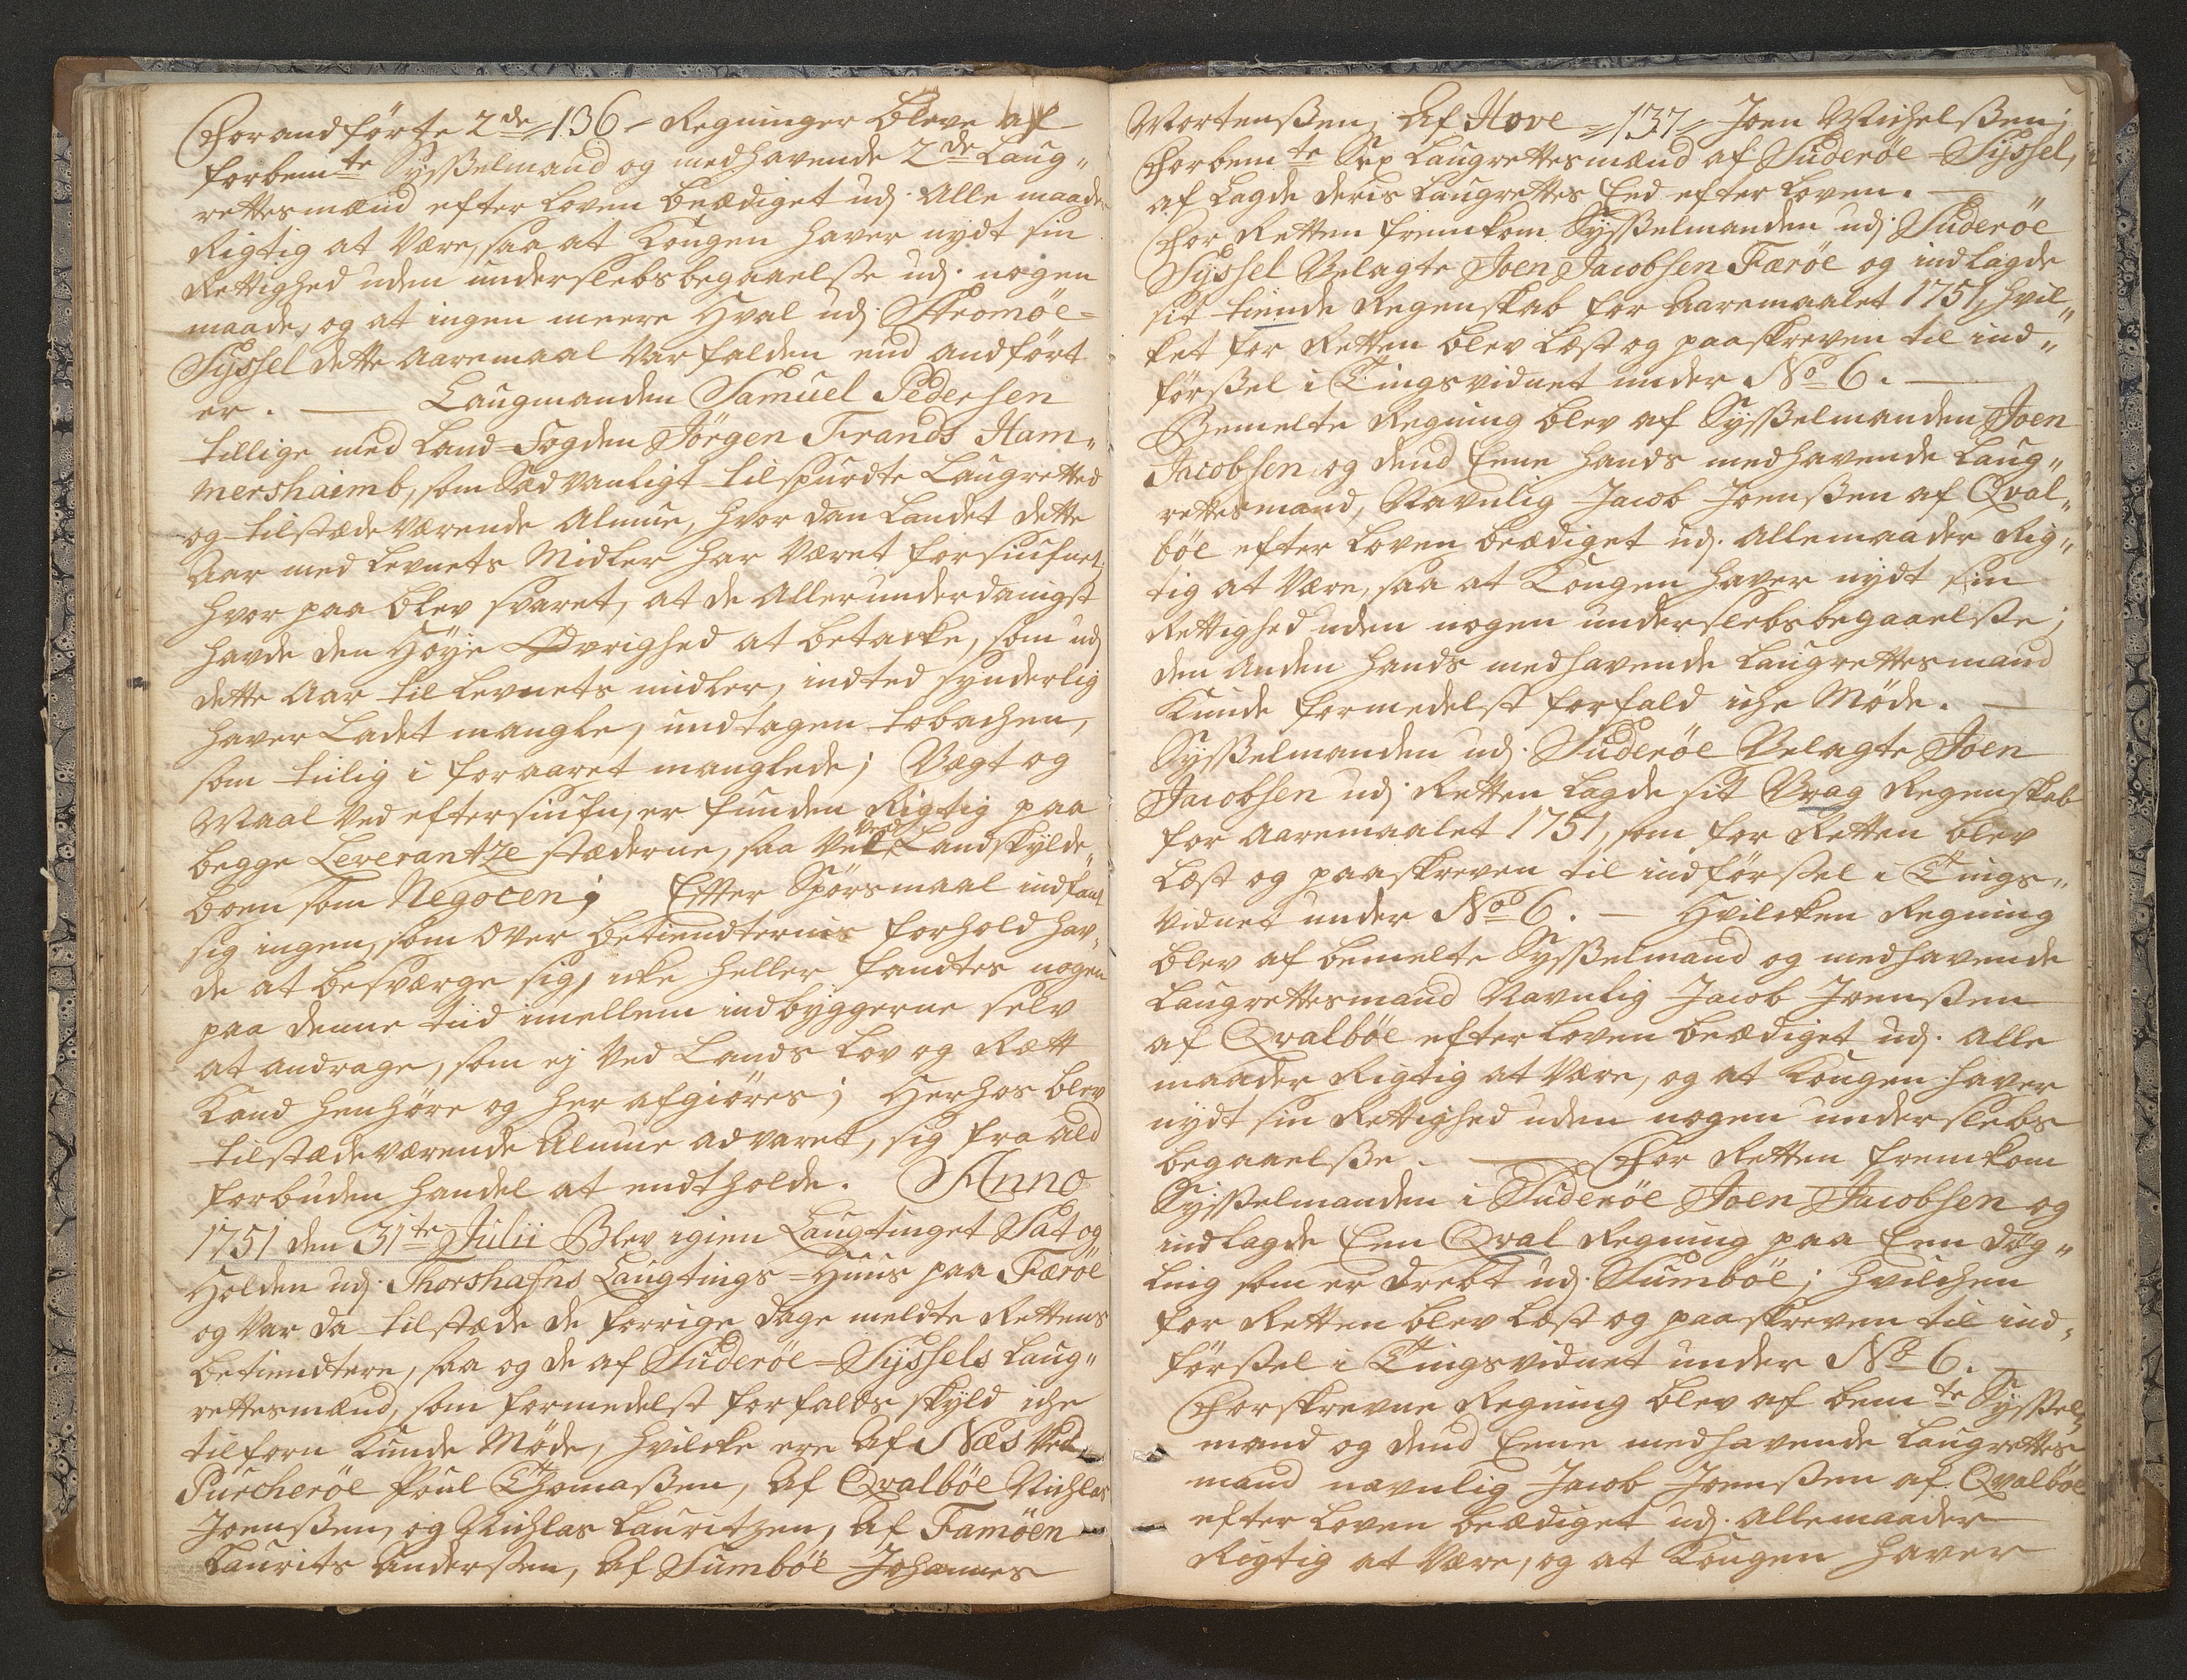 Forandførte 2de =136= Regninger bleve af
forbemte Sysselmand og medhavende 2de Laug„
rettesmænd efter Loven beædiget udj alle maader
Rigtig at være, saa at Kongen haver nydt sin
Rettighed uden underslebs begaaelse udj nogen
maade, og at ingen meere Hval udj Strömöe=
Syssel dette Aaremaal var falden end andført
er. — Laugmanden Samuel Pedersen
tillige med Land-Fogden Jörgen Frands Ham„
mershaimb, som Sædvanligt tilspurdte Laugretted
og tilstædeværende Almue, hvordan Landet dette
Aar med Levnets Midler har været forsiufnet;
hvor paa blev svaret, at de Allerunderdanigst
havde den Höye Øvrighed at betacke, som udj
dette Aar til Levnets midler, indted synderlig
haver Ladet mangle, undtagen tobachen,
som tiilig i foraaret manglede; Vægt og
Maal ved eftersiufn, er funden Rigtig paa
begge Leverantze stæderne, saa vel ved Landskylds
boen som Negocen; Efter Spörsmaal indfant
sig ingen, som over betiendternis forhold hav„
de at besværge sig, icke heller fandtes nogen
paa denne tiid imellem indbyggerne selv
at andrage, som ej ved Lands Lov og Rætt
Kand henhöre og her afgiöres; Herhos blev
tilstædeværende Almue advaret, sig fra ald
forbuden handel at endtholde. Anno
1751 den 31te Julii Blev igien Laugtinget Sat og
Holden udj Thorshafns Laugtings=Huus paa Færöe
og var da tilstæde de forrige dage meldte Rettens
betiendtere, saa og de af Suderöe=Syssels Laug„
rettesmænd, som formedelst forfalds skyld iche
tilforn Kunde Möde, hvilcke ere Af Næs ved
Purcheröe Poul Thomassen, Af Qvalböe Nichlas
Joenssen, og Nichlas Lauritzen, Af Famöen
Laurits Anderssen, Af Sumböe Johannes
Mortenssen, Af Hove =137= Joen Michelssen;
Forbemte Sex Laugrettesmænd af Suderöe=Syssel,
af Lagde deris Laugrettes Eed efter Loven. —
For Retten fremkom Sysselmanden udj Suderöe
Syssel Velagte Joen Jacobsen Færöe og indlagde
sit tiende Regenskab for Aaremaalet 1751, hvil„
ket for Retten blev Læst og paaskreven til ind„
förssel i Tingsvidnet under No 6. —
Bemelte Regning blev af Sysselmanden Joen
Jacobsen og dend Eene hands medhavende Laug„
rettesmand, Navnlig Jacob Joenssen af Qval„
böe efter Loven beædiget udj allemaader Rig„
tig at være, saa at Kongen haver nydt sin
Rettighed uden nogen underslebs begaaelsse;
den Anden hands medhavende Laugrettesmand
Kunde formedelst forfald iche Möde. —
Sysselmanden udj Suderöe Velagte Joen
Jacobsen udj Retten Lagde sit Vrag Regenskab
for Aaremaalet 1751, som for Retten blev
Læst og paaskreven til indförssel i Tings„
vidnet under No 6. — Hvilcken Regning
blev af bemelte Sysselmand og medhavende
Laugrettesmand Navnlig Jacob Joenssen
af Qvalböe efter Loven beædiget udj alle
maader Rigtig at være, og at Kongen haver
nydt sin Rettighed uden nogen underslebs
begaaelsse. — For Retten fremkom
Sysselmanden i Suderöe Joen Jacobsen og
indlagde Een Qval Regning paa Een Dög„
ling som er dræbt udj Sumböe; hvilchen
for Retten blev Læst og paaskreven til ind„
förssel i Tingsvidnet under No 6. —
Forskrevne Regning blev af bemte Syssel„
mand og dend Eene medhavende Laugrettes
mand navnlig Jacob Joenssen af Qvalböe
efter Loven beædiget udj allemaader
Rigtig at være, og at Kongen haver